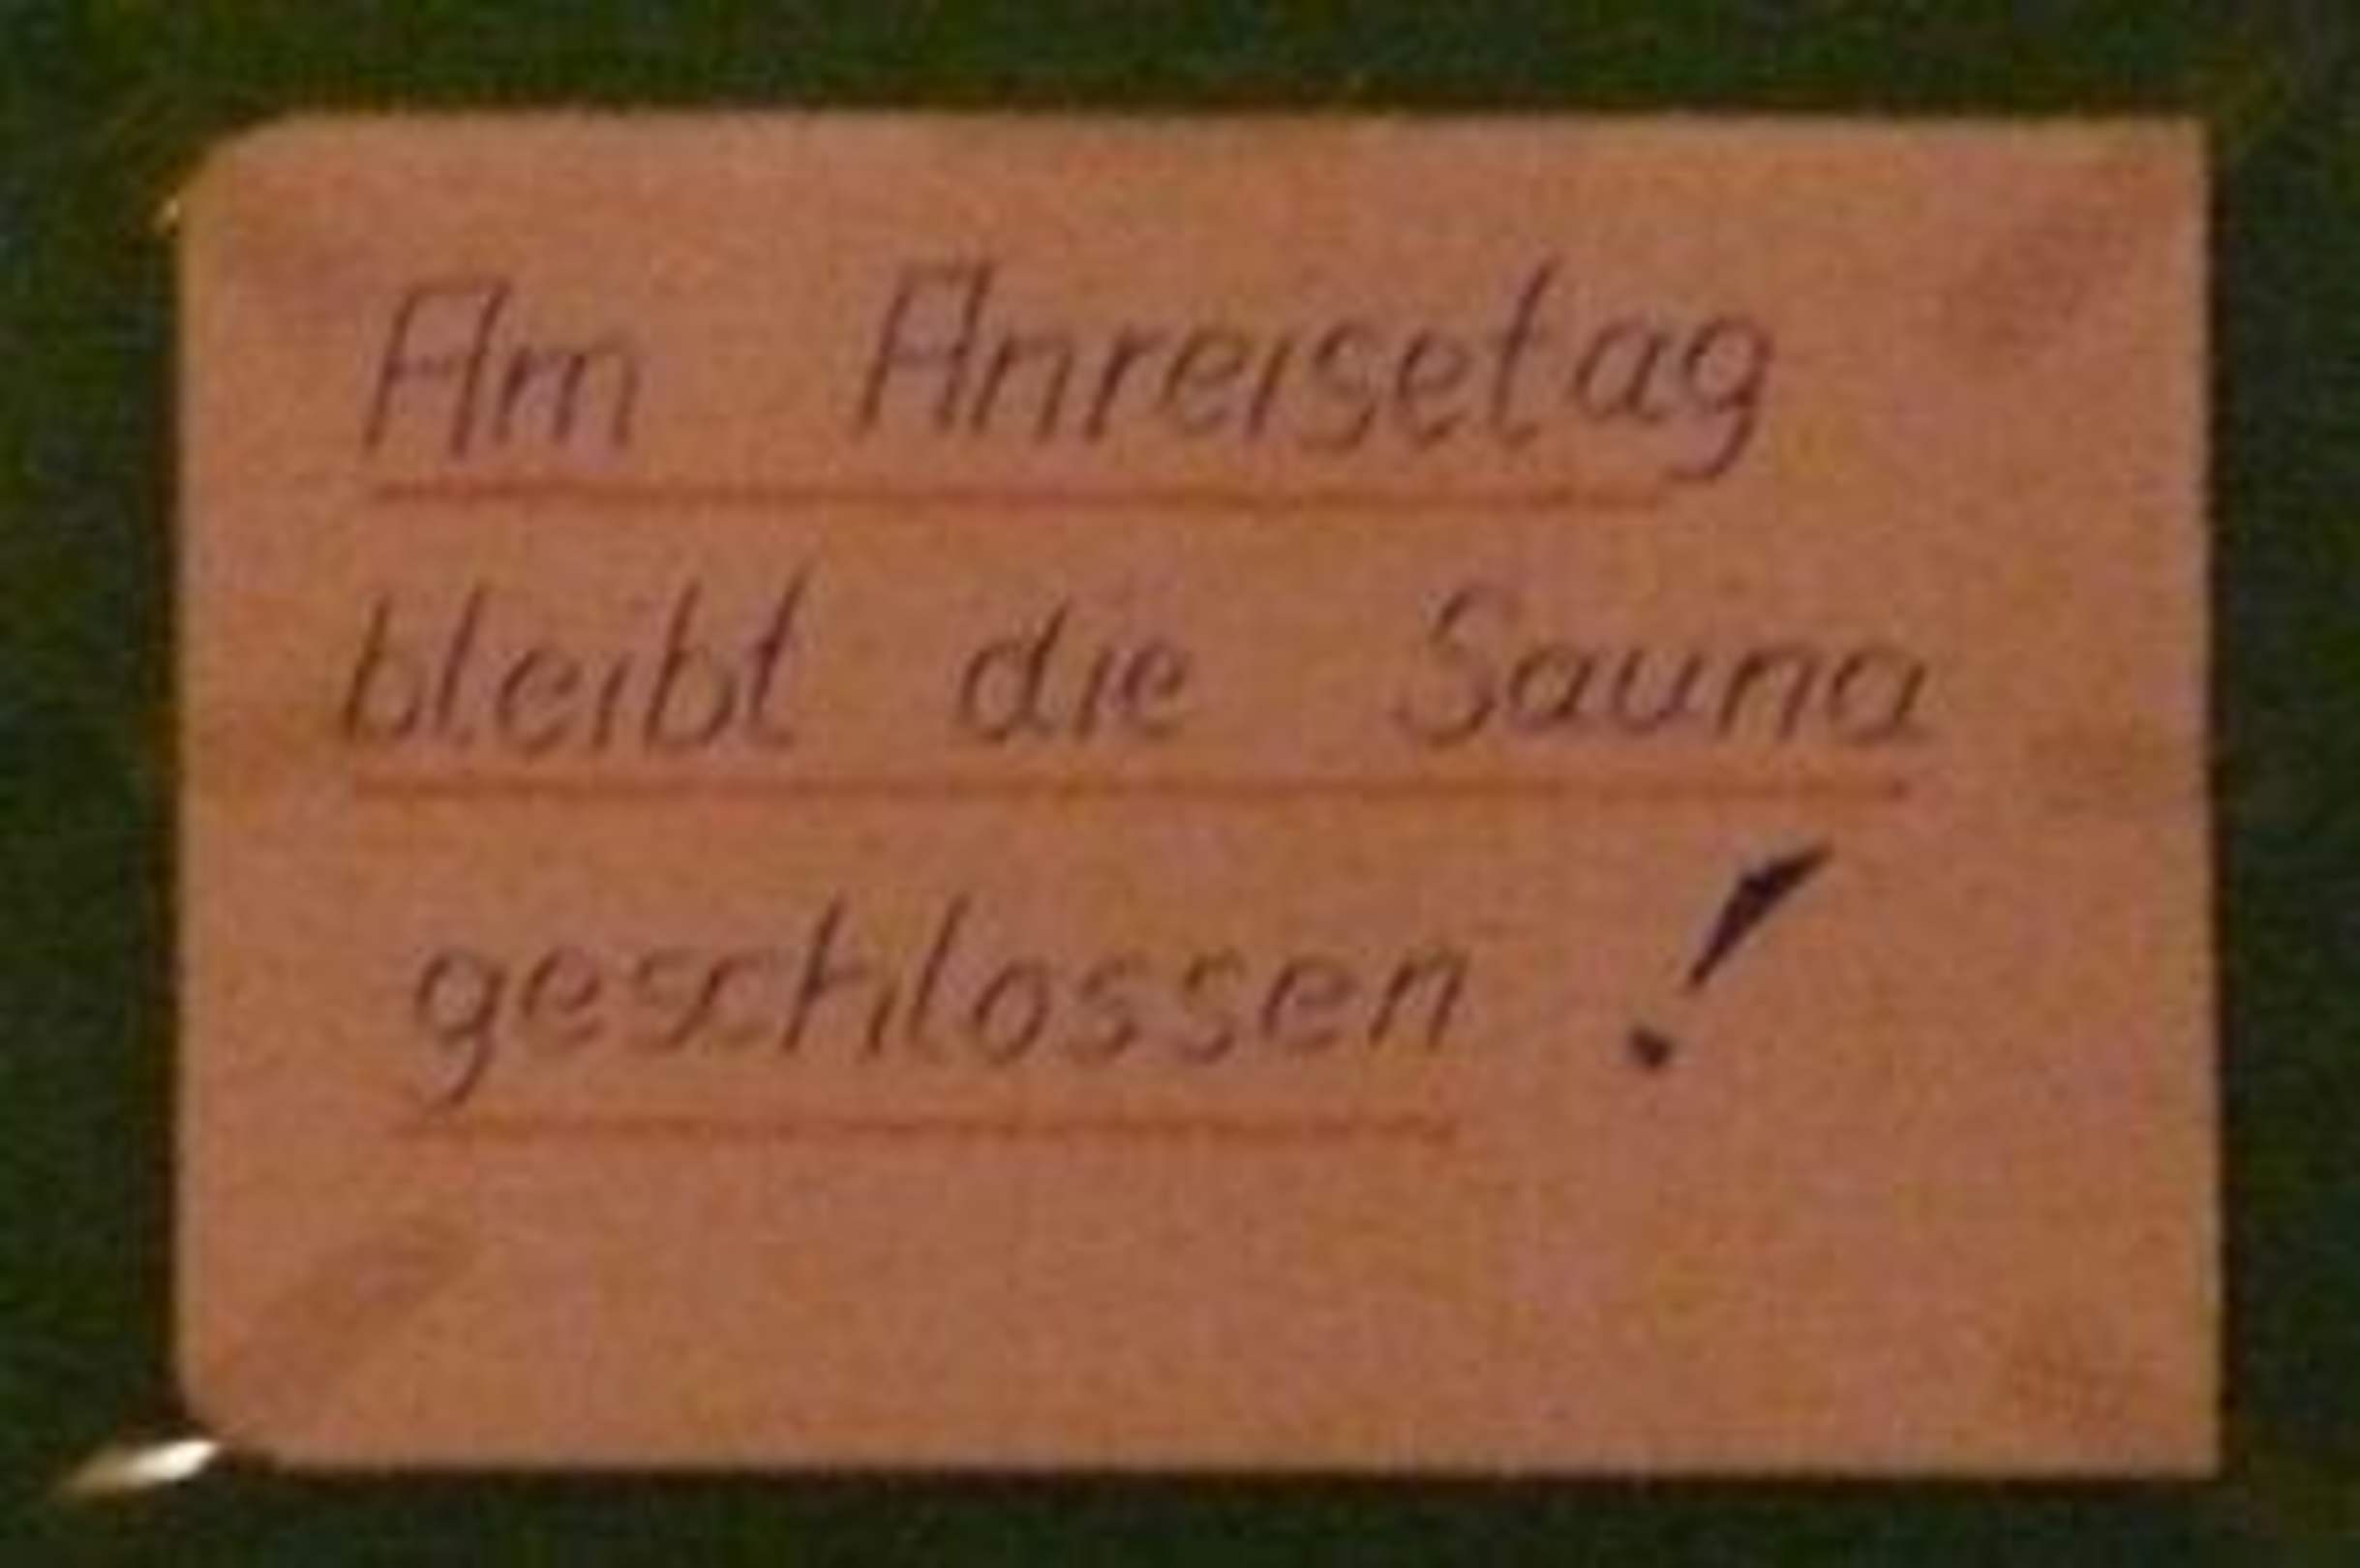 Am Anreisetag
bleibt die Sauna
geschlossen !